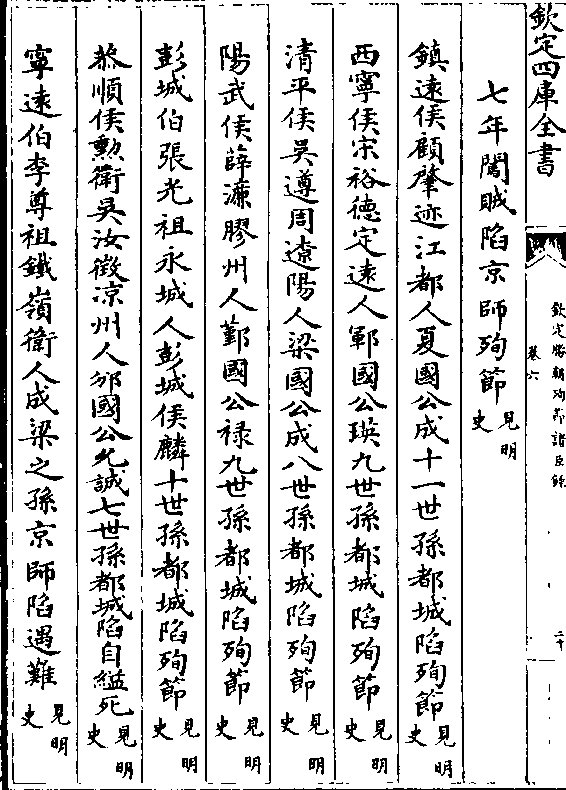 欽定四庫全書
欽定勝朝殉節諸臣錄
卷六
二十
七年闖賊陷京師殉節見明史
鎮逺侯顧肇迹江都人夏國公成十一世孫都城陷殉節見明史
西寧侯宋裕徳定逺人鄆國公瑛九世孫都城陷殉節見明史
清平侯吳遵周遼陽人梁國公成八世孫都城陷殉節見明史
陽武侯薛濂膠州人鄞國公禄九世孫都城陷殉節見明史
彭城伯張光祖永城人彭城侯麟十世孫都城陷殉節見明史
恭順侯勲衛吳汝徵凉州人邠國公允誠七世孫都城陷自縊死見明史
寧逺伯李尊祖鐵嶺衛人成梁之孫京師陷遇難見明史